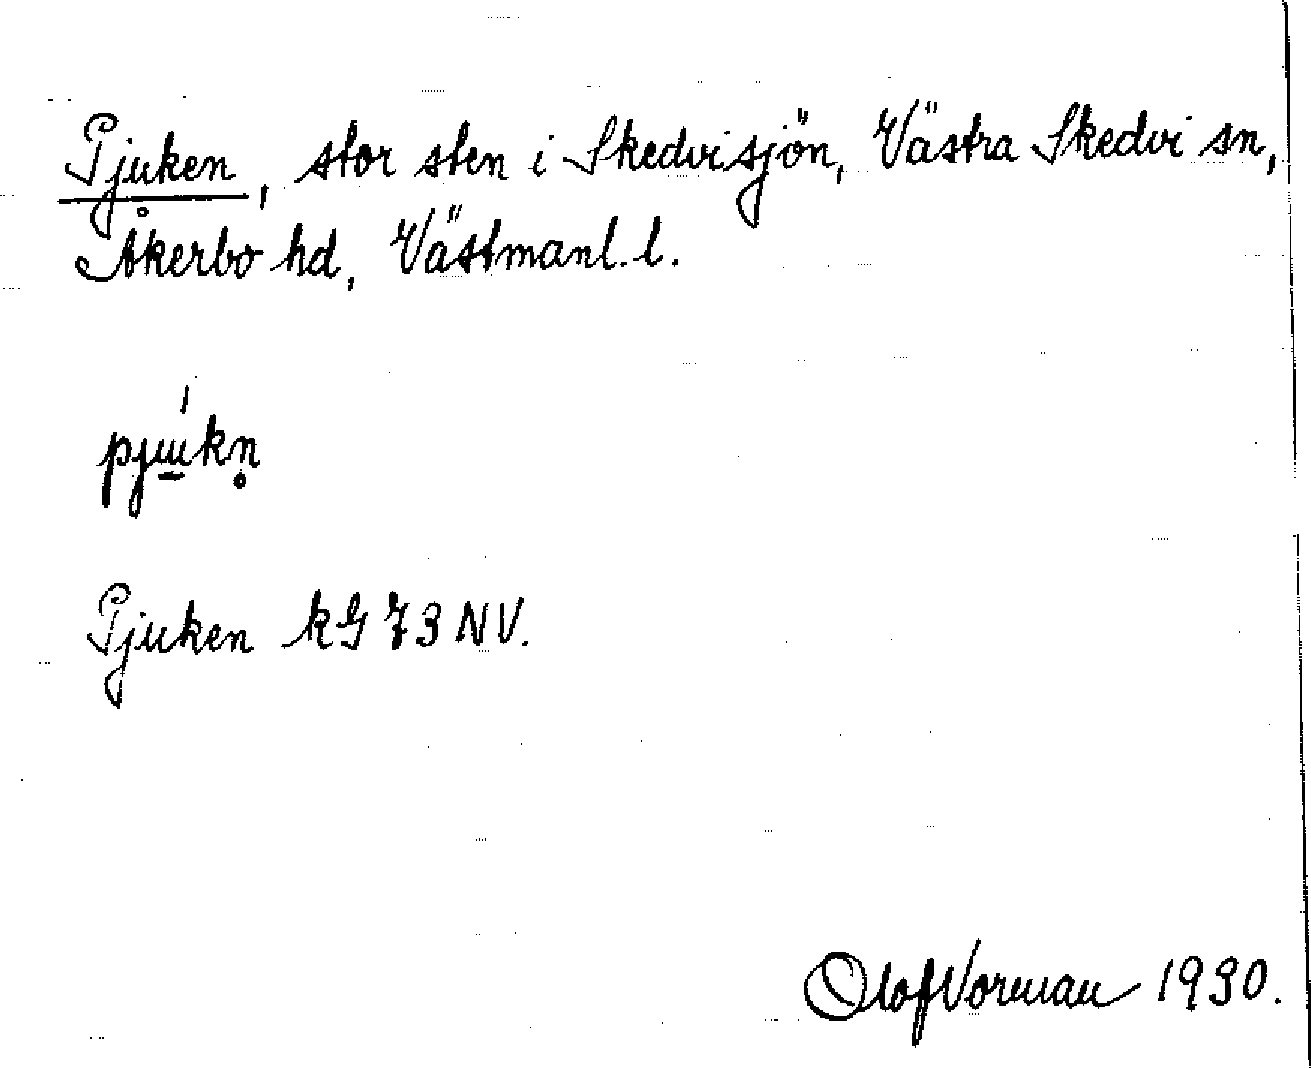 Pjuken, stor sten i Skedvisjön, Västra Skedvi sn,
Åkerbo hd, Västmanl. l.
Pjuken kG 73 NV.
Olof Vorman 1930.